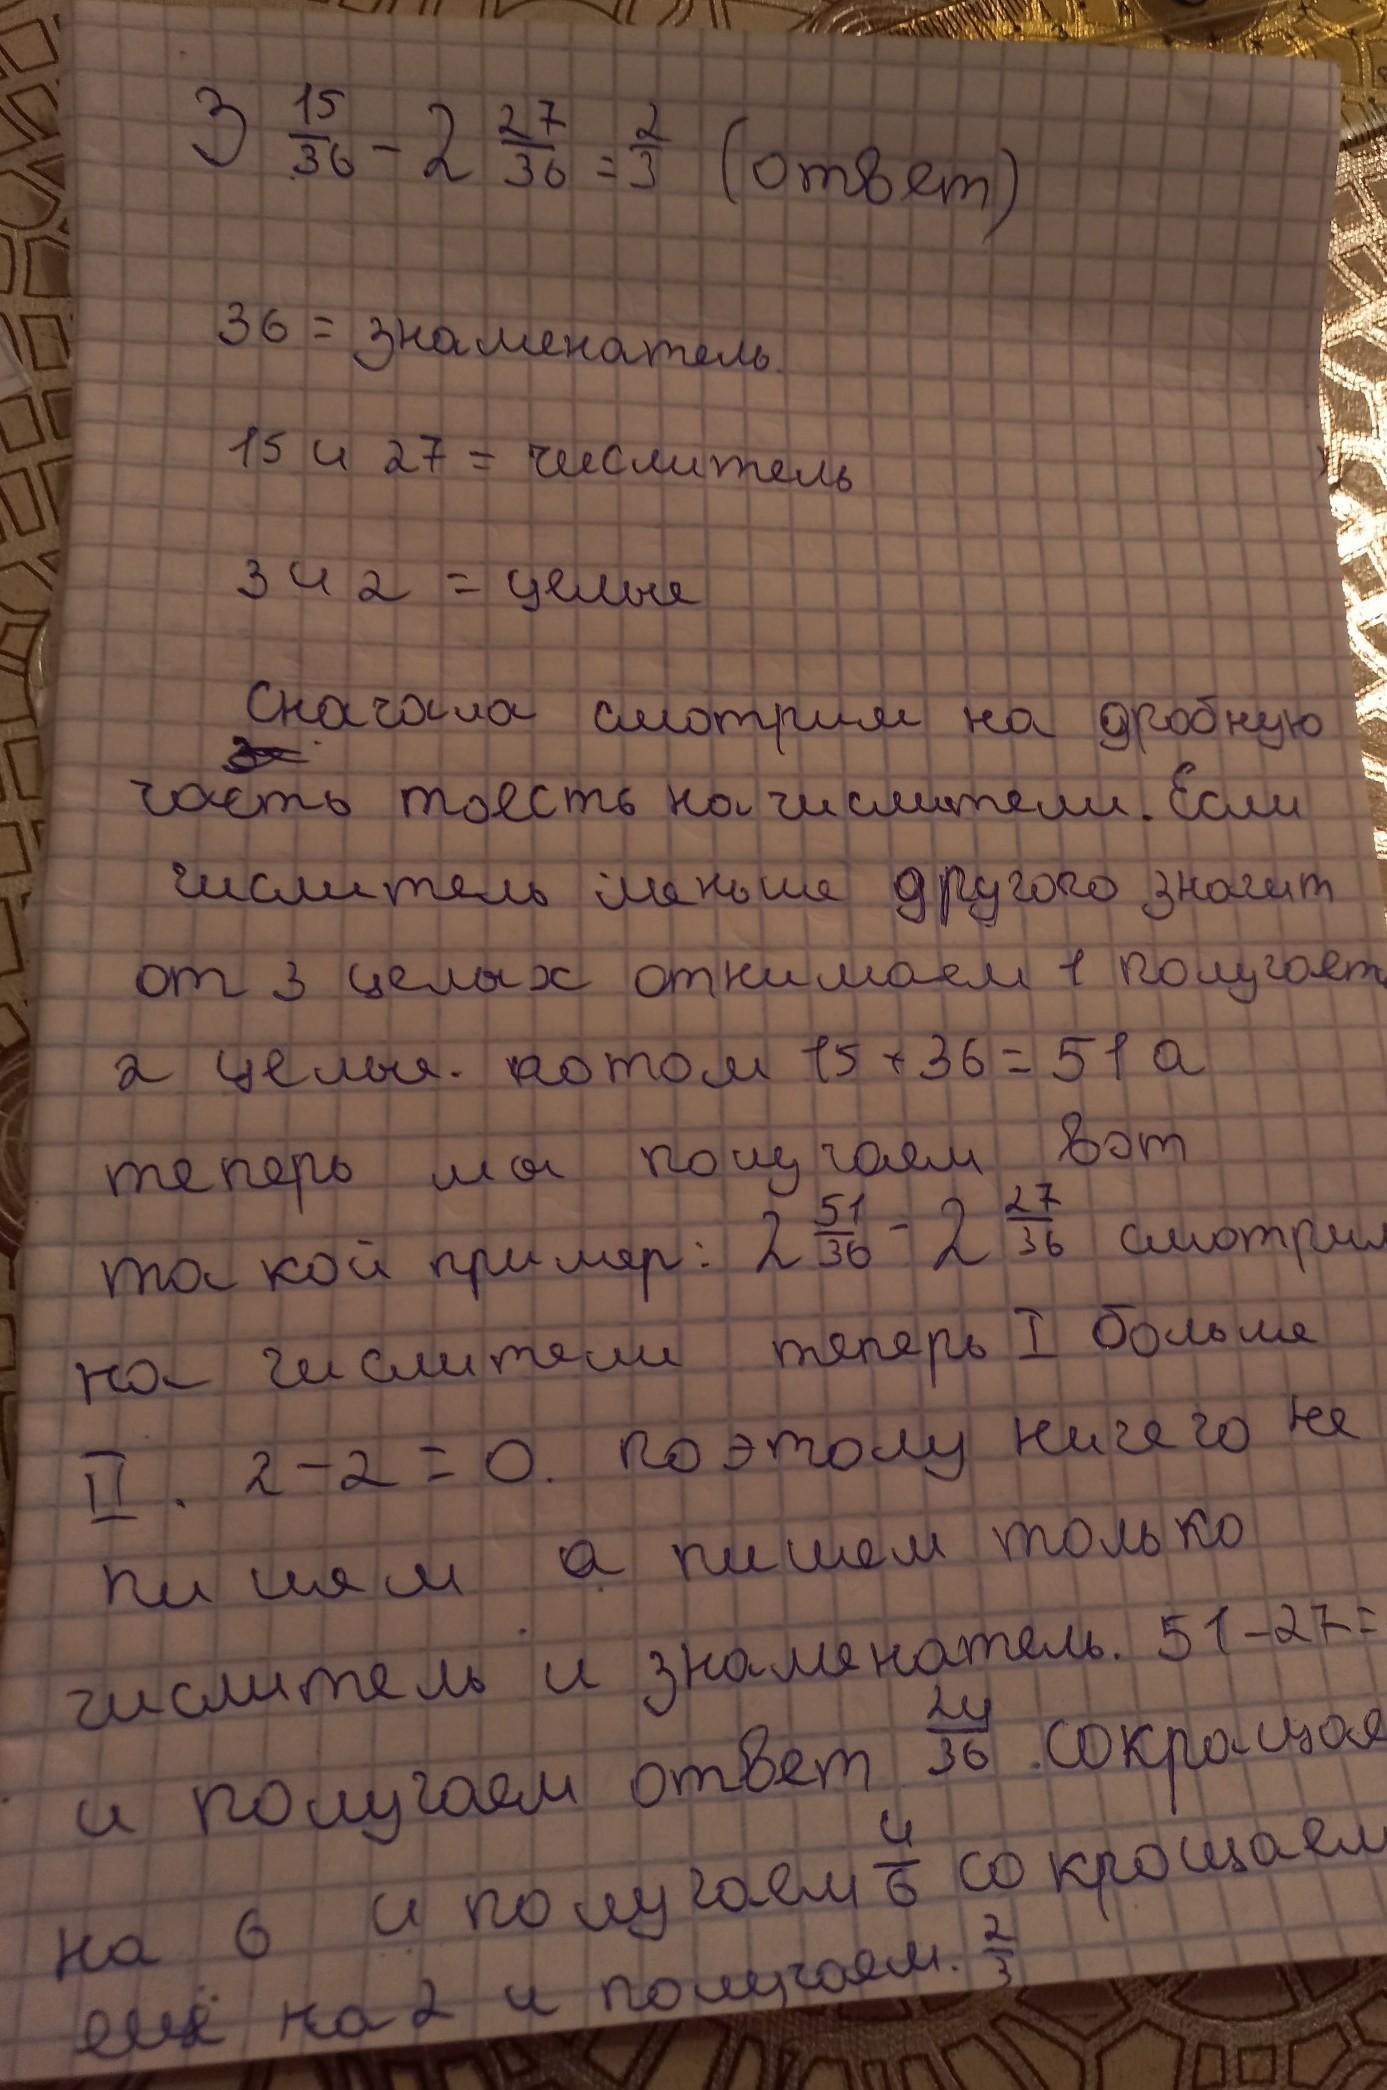 3 15/36 - 2 27/36 = 2/3 (ответ)
36 = знаменатель.
15 и 27 = числитель
3 и 2 = целые
Сначала смотрим на дробную
часть тоесть на числители. Если
числитель меньше другого значит
от 3 целых отнимаем 1 получает
2 целые. потом 15 + 36 = 51 а
теперь мы получаем вот
такой пример: 2 51/36 - 2 27/36 смотрим
на числители теперь I больше
II. 2 - 2 = 0. поэтому ничего не
пишем а пишем только
числитель и знаменатель. 51 - 27 =
и получаем ответ 24/36 . сокращае
на 6 и получаем 4/6 сокрощаем
ещё на 2 и получаем. 2/3